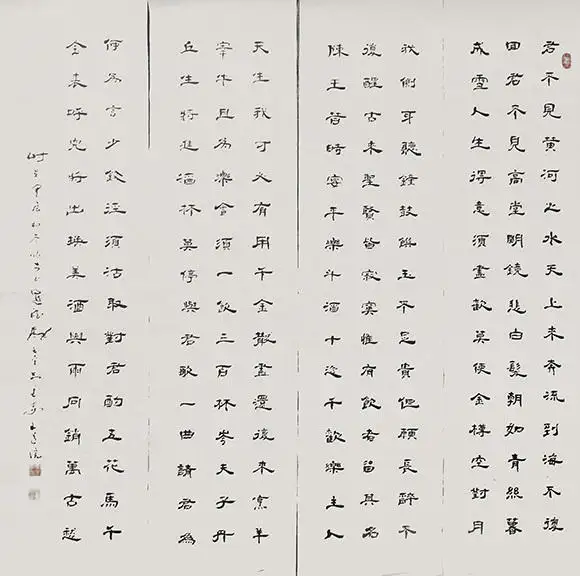 君不見黄河之水天上来奔流到海不復
回君不見高堂明鏡悲白髮朝如青絲暮
成雪人生得意須盡歡莫使金樽空對月
我側耳聽鐘鼓饌玉不足貴但願長醉不
復醒古来聖賢皆寂寞惟有飲者留其名
陳王昔時宴平樂斗酒十恣千歡樂主人
天生我才必有用千金散盡還復来烹羊
宰牛且為樂會須一飲三百杯岑夫子丹
丘生將進酒杯莫停與君歌一曲請君為
何為言少錢徑須沽取對君酌五花馬千
金裘呼兒將出換美酒與爾同銷萬古愁
時甲辰